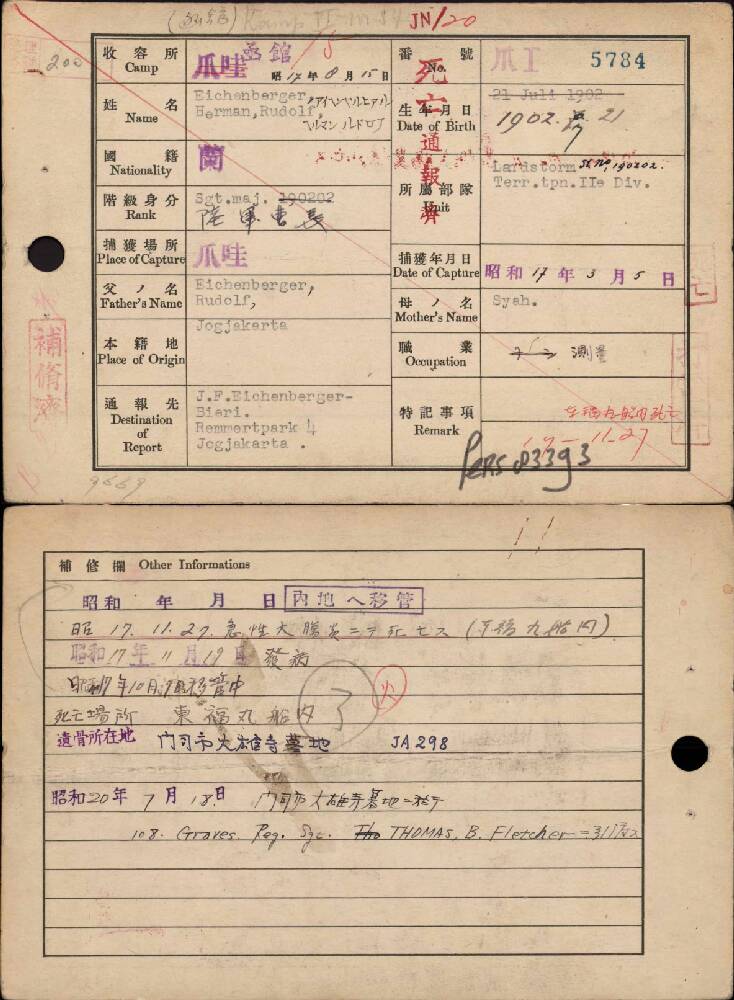 (函館) Kamp JN/20
收容所
Camp
爪哇 函館
昭 17 年 8 月 15 日
番號
No.
爪 I
5784
200
姓名
Name
Eichenberger,
Herman, Rudolf,
アイヘンベルヒアル
ヘルマン ルドロフ
生年月日
Date of Birth
21 Juli 1902
1902. 7. 21
死亡通報濟
國籍
Nationality
蘭
階級身分
Rank
Sgt.maj. 190202
陸軍曹長
所屬部隊
Unit
Landstorm St. No. 190202.
Terr.tpn.IIe Div.
捕獲場所
Place of Capture
爪哇
捕獲年月日
Date of Capture
昭和 17 年 3 月 5 日
亡
父ノ名
Father's Name
Eichenberger,
Rudolf,
母ノ名
Mother's Name
Syah.
本籍地
Place of Origin
Jogjakarta
職業
Occupation
測量
補脩濟
通報先
Destination
of
Report
J.F.Eichenberger-
Bieri.
Remmertpark 4
Jogjakarta .
特記事項
Remark
船内死亡
17-11.27
Pers 083393
9669
補修欄 Other Informations
昭和 年 月 日 內地へ移管
昭 17. 11. 27. 急性大腸炎ニテ死亡ス (東福丸船内)
昭和17年11月19日 發病
昭和17年10月 日移管中
死亡場所 東福丸船内
3
火
遺骨所在地 门司市大雄寺墓地 JA298
昭和20年 7月 18日 门司市大雄寺墓地ニ於テ
108. Graves. Reg. Sgc. Tho THOMAS. B. Fletcher ニ引渡ス